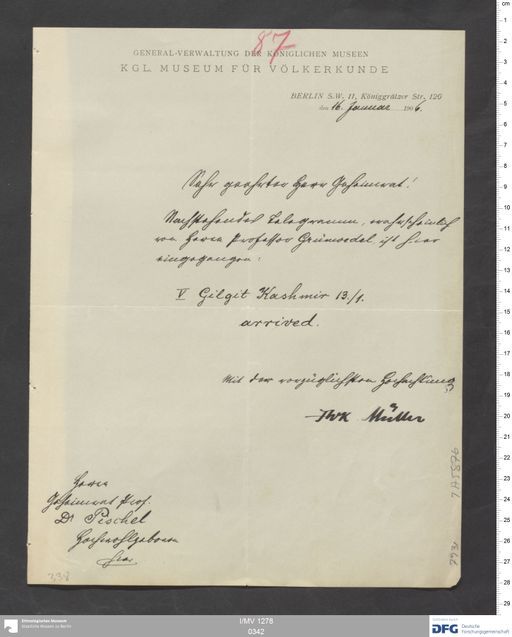 87
GENERAL-VERWALTUNG DER KÖNIGLICHEN MUSEEN
KGL. MUSEUM FÜR VÖLKERKUNDE
BERLIN S.W. 11, Königgrätzer Str. 120
den 16. Januar 1906.
Sehr geehrter Herr Geheimrat!
Nachstehendes Telegramm, wahrscheinlich
von Herrn Professor Grünwedel, ist hier
eingegangen:
V Gilgit Kashmir 13./1.
arrived.
Mit der vorzüglichsten Hochachtung
FWK Müller
Herrn
Geheimrat Prof.
Dr Pischel
Hochwohlgeboren
hier
I/MV 1278
0342
Ethnologisches Museum
Staatliche Museen zu Berlin
DFG Deutsche
Forschungsgemeinschaft
cm
1
2
3
4
5
6
7
8
9
10
11
12
13
14
15
16
17
18
19
20
21
22
23
24
25
26
27
28
29